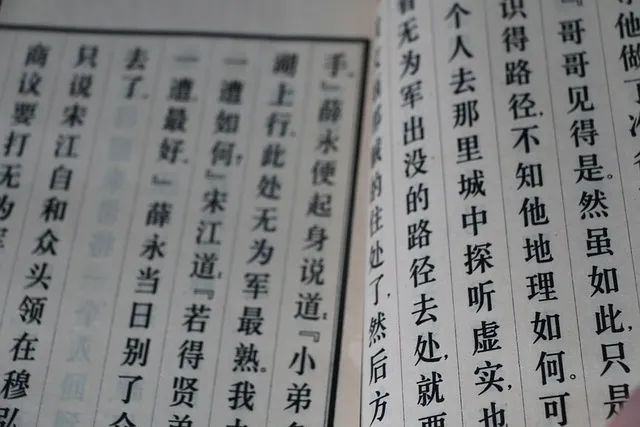 他做了
『哥哥见得是。然虽如此,只是
识得路径,不知他地理如何。可
个人去那里城中探听虚实,也
看无为军出没的路径去处,就要
贼的住处了,然后方
手。』薛永便起身说道:『小弟多
湖上行。此处无为军最熟。我去
一遭如何?』宋江道:『若得贤弟
一遭最好。』薛永当日别了众
去了。
只说宋江自和众头领在穆弘
商议要打无为军